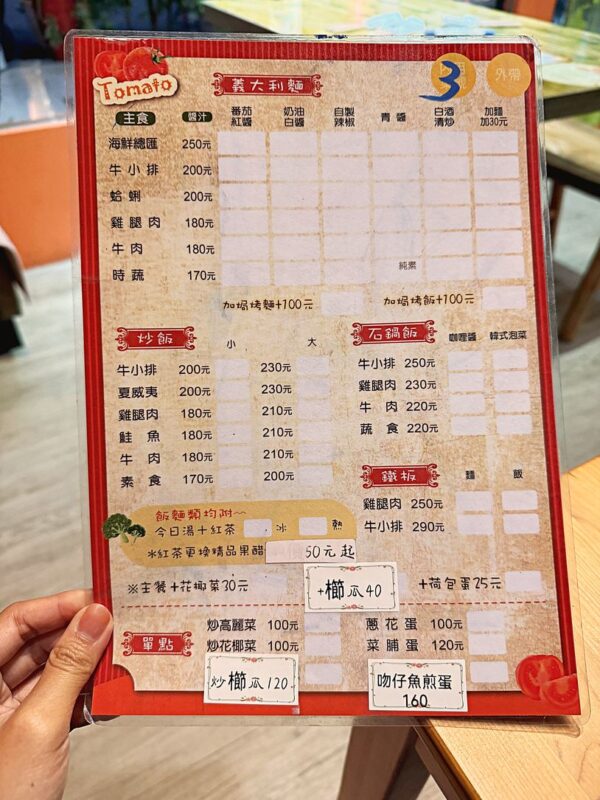 Tomato
義大利麵
3
外帶
主食 醬汁 番茄紅醬 奶油白醬 自製辣椒 青醬 白酒清炒 加麵加30元
海鮮總匯 250元
牛小排 200元
蛤蜊 200元
雞腿肉 180元
牛肉 180元
純素
時蔬 170元
加焗烤麵+100元 加焗烤飯+100元
炒飯 小 大
牛小排 200元 230元
夏威夷 200元 230元
雞腿肉 180元 210元
鮭魚 180元 210元
牛肉 180元 210元
素食 170元 200元
石鍋飯 咖哩醬 韓式泡菜
牛小排 250元
雞腿肉 230元
牛肉 220元
蔬食 220元
鐵板 麵 飯
雞腿肉 250元
牛小排 290元
飯麵類均附~
今日湯+紅茶 冰 熱
*紅茶更換精品果醋 50元起
※主餐+花椰菜30元
+櫛瓜40
+荷包蛋25元
單點
炒高麗菜 100元
炒花椰菜 100元
炒櫛瓜120
蔥花蛋 100元
菜脯蛋 120元
吻仔魚煎蛋
160